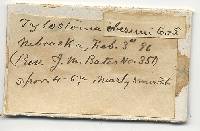 Tylostoma obesum C&E
Nebraska, Feb. 3d 86
(Rev. J. M. Bates No. 350)
Spores 4-5µ. nearly smooth